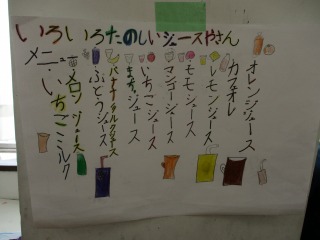 いろいろたのしいジュースやさん
メニュー
オレンジジュース
カフェオレ
レモンジュース
モモジュース
マンゴージュース
いちごジュース
まっちゃジュース
バナナミルクジュース
ぶどうジュース
メロンジュース
いちごミルク